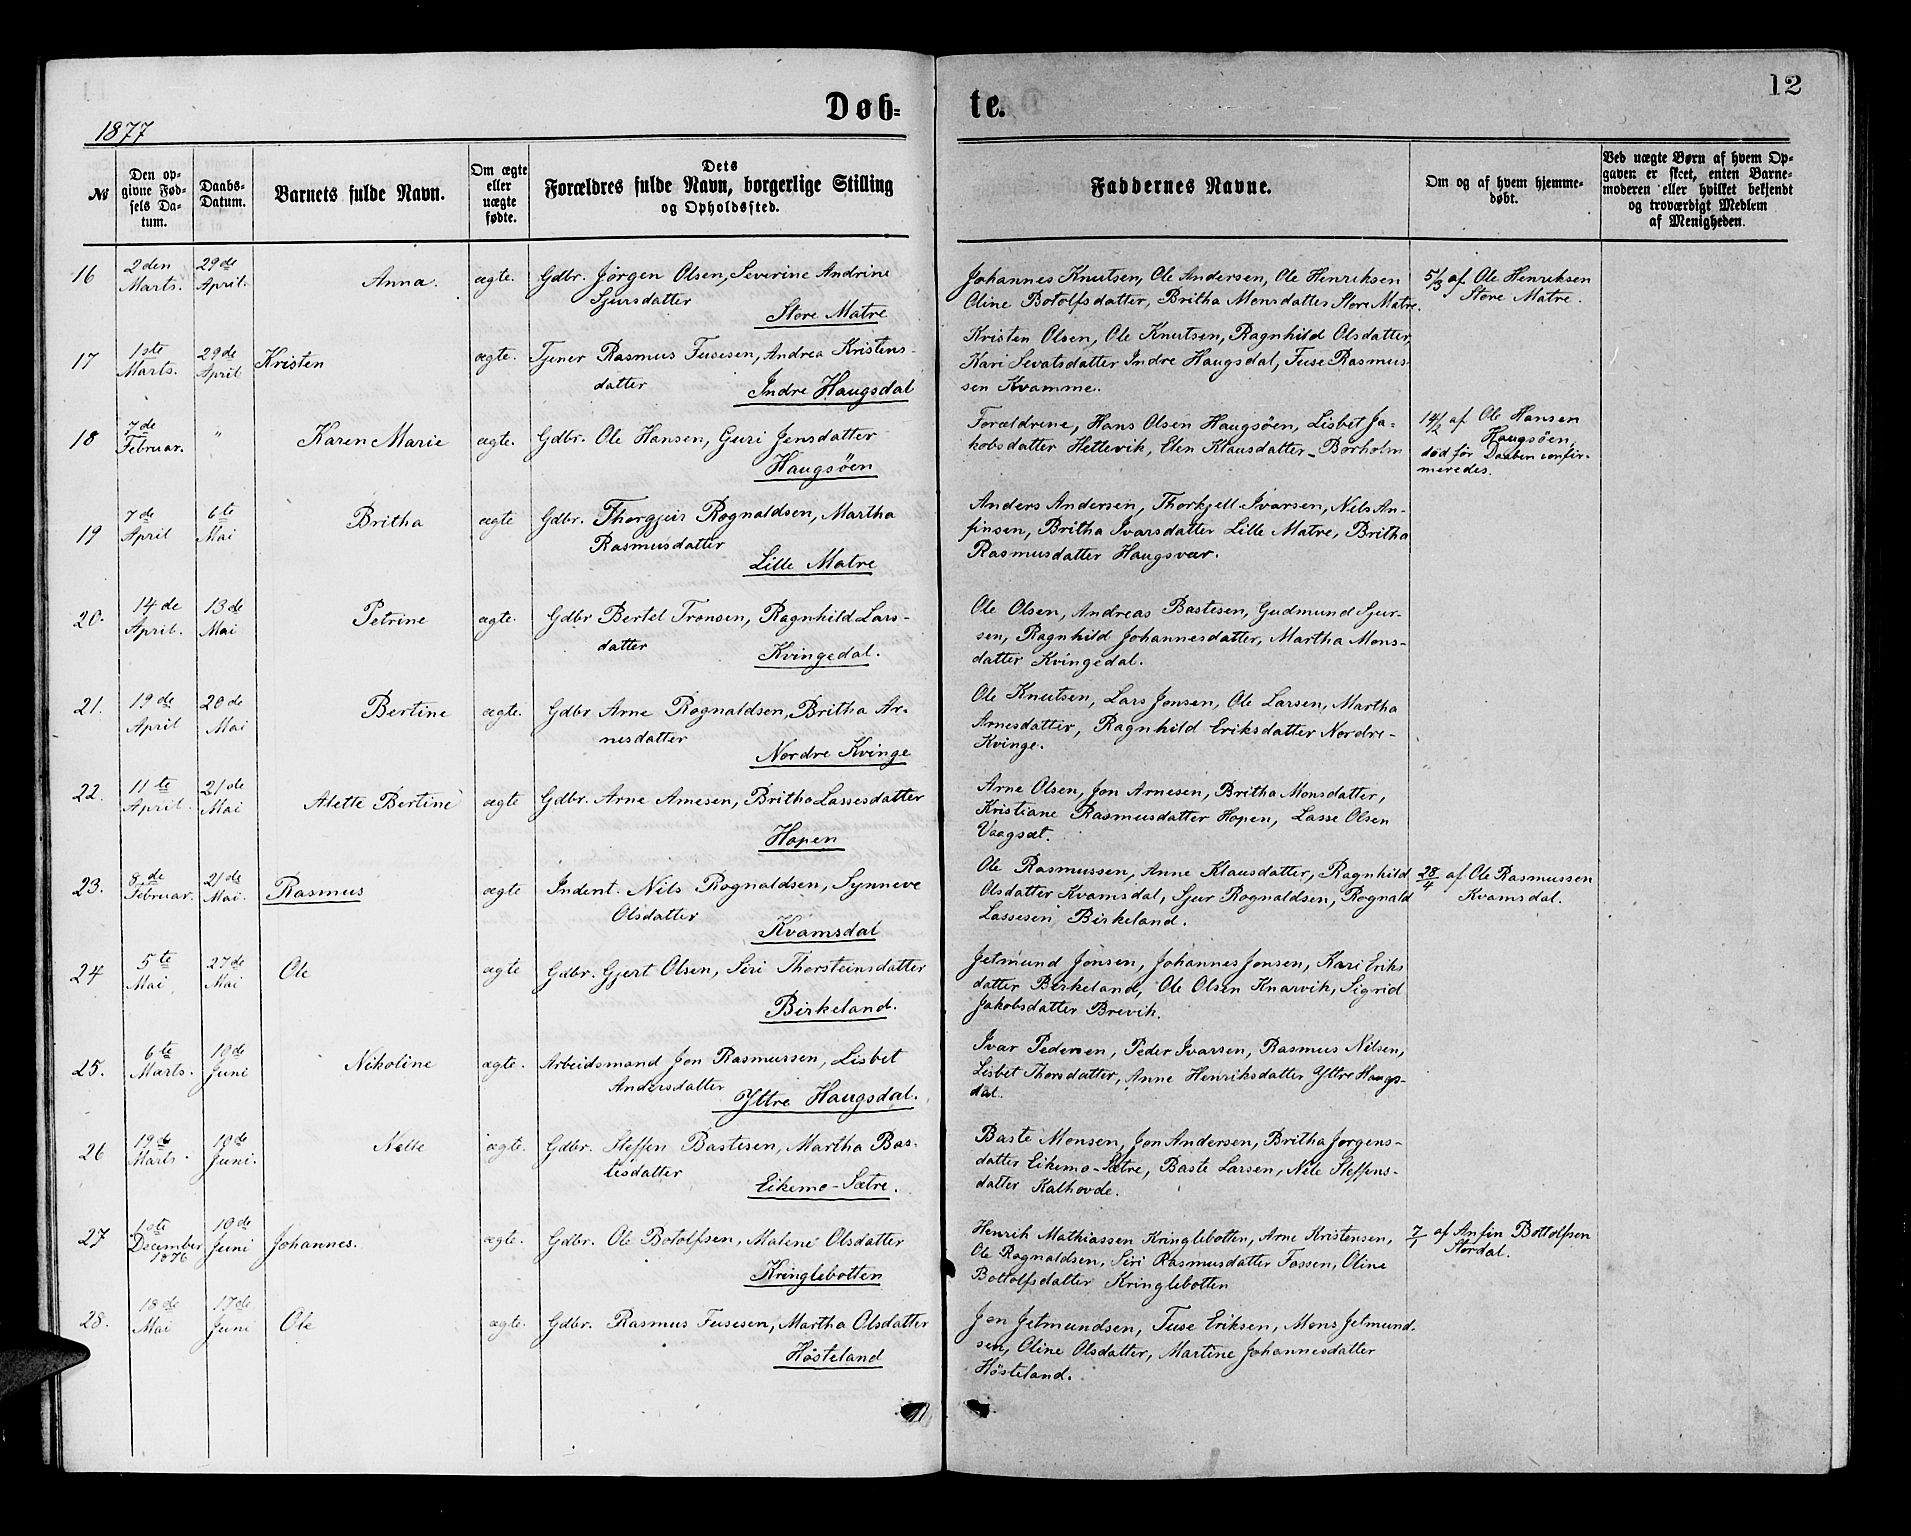 12
Døb= te.
1877
№
Den op-
givne Fød-
sels Da-
tum.
Daabs-
Datum.
Barnets fulde Navn.
Om ægte
eller
uægte
fødte.
Dets
Forældres fulde Navn, borgerlige Stilling
og Opholdssted.
Faddernes Navne.
Om og af hvem hjemme-
døbt.
Ved uægte Børn af hvem Op-
gaven er skeet, enten Barne-
moderen eller hvilket bekjendt
og troværdigt Medlem
af Menigheden.
16 2den Marts. 29de April. Anna. ægte. Gdbr. Jørgen Olsen, Severine Andrine
Sjursdatter
Store Matre
Johannes Knutsen, Ole Andersen, Ole Henriksen
Oline Botolfsdatter, Britha Monsdatter Store Matre.
5/3 af Ole Henriksen
Store Matre.
17 1ste Marts. 29de April Kristen ægte. Tjener Rasmus Fusesen, Andrea Kristens-
datter
Indre Haugsdal
Kristen Olsen, Ole Knutsen, Ragnhild Olsdatter,
Kari Sevatsdatter Indre Haugsdal, Fuse Rasmus-
sen Kvamme.
18 7de Februar. " Karen Marie ægte. Gdbr. Ole Hansen, Guri Jensdatter
Haugsöen
Forældrene, Hans Olsen Haugsöen, Lisbet Ja-
kobsdatter Hettevik, Elen Klausdatter Borholm
14/2 af Ole Hansen
Haugsöen,
död för Daaben confir-
meredes.
19 7de April 6te Mai Britha ægte Gdbr. Thorgjeir Rognaldsen, Martha
Rasmusdatter
Lille Matre
Anders Andersen, Thorkjell Ivarsen, Nels An-
finsen, Britha Ivarsdatter Lille Matre, Britha
Rasmusdatter Haugsvær.
20. 14de April. 13de Mai Petrine ægte. Gdbr Bertel Tronsen, Ragnhild Lars-
datter
Kvingedal.
Ole Olsen, Andreas Bastesen, Gudmund Sjur-
sen, Ragnhild Johannesdatter, Martha Mons-
datter Kvingedal.
21. 19de April 20de Mai Bertine ægte. Gdbr Arne Rognaldsen, Britha Ar-
nesdatter
Nordre Kvinge
Ole Knutsen, Lars Jonsen, Ole Larsen, Martha
Arnesdatter, Ragnhild Eriksdatter Nordre-
Kvinge.
22. 11te April. 21de Mai Alette Bertine ægte Gdbr. Arne Arnesen, Britha Lassesdatter
Hopen
Arne Olsen, Jon Arnesen, Britha Monsdatter,
Kristiane Rasmusdatter Hopen, Lasse Olsen
Vaagsæt.
23. 8de Februar. 21de Mai. Rasmus ægte Inderst. Nils Rognaldsen, Synneve
Olsdatter
Kvamsdal
Ole Rasmussen, Anne Klausdatter, Ragnhild
Olsdatter Kvamsdal, Sjur Rognaldsen, Rognald
Lassesen Birkeland.
28/4 af Ole Rasmussen
Kvamsdal.
24 5te Mai. 27de Mai Ole ægte Gdbr. Gjert Olsen, Siri Thorsteinsdatter
Birkeland.
Jetmund Jonsen, Johannes Jonsen, Kari Eriks
datter Birkeland, Ole Olsen Knarvik, Sigrid
Jakobsdatter Brevik.
25. 6te Marts. 10de Juni Nikoline ægte. Arbeidsmand Jon Rasmussen, Lisbet
Andersdatter
Yttre Haugsdal.
Ivar Pedersen, Peder Ivarsen, Rasmus Nilsen,
Lisbet Thorsdatter, Anne Henriksdatter Yttre Haugs-
dal.
26 19de Marts. 10de Juni. Nelle ægte. Gdbr. Steffen Bastesen, Martha Bas-
tesdatter
Eikemo-Sætre.
Baste Monsen, Jon Andersen, Britha Jørgens-
datter Eikemo-Sætre, Baste Larsen, Nele Steffens-
datter Kalhovde.
27 1ste December 1876 10de Juni Johannes. ægte. Gdbr. Ole Botolfsen, Malene Olsdatter
Kringlebotten
Henrik Mathiassen Kringlebotten, Arne Kristensen,
Ole Rognaldsen, Siri Rasmusdatter Fossen, Oline
Bottolfsdatter Kringlebotten
7/1 af Anfin Bottolfsen
Stordal.
28. 18de Mai 17de Juni Ole ægte. Gdbr. Rasmus Fusesen, Martha Olsdatter
Hösteland
Jon Jetmundsen, Fuse Eriksen, Mons Jetmund-
sen, Oline Olsdatter, Martine Johannesdatter
Hösteland.